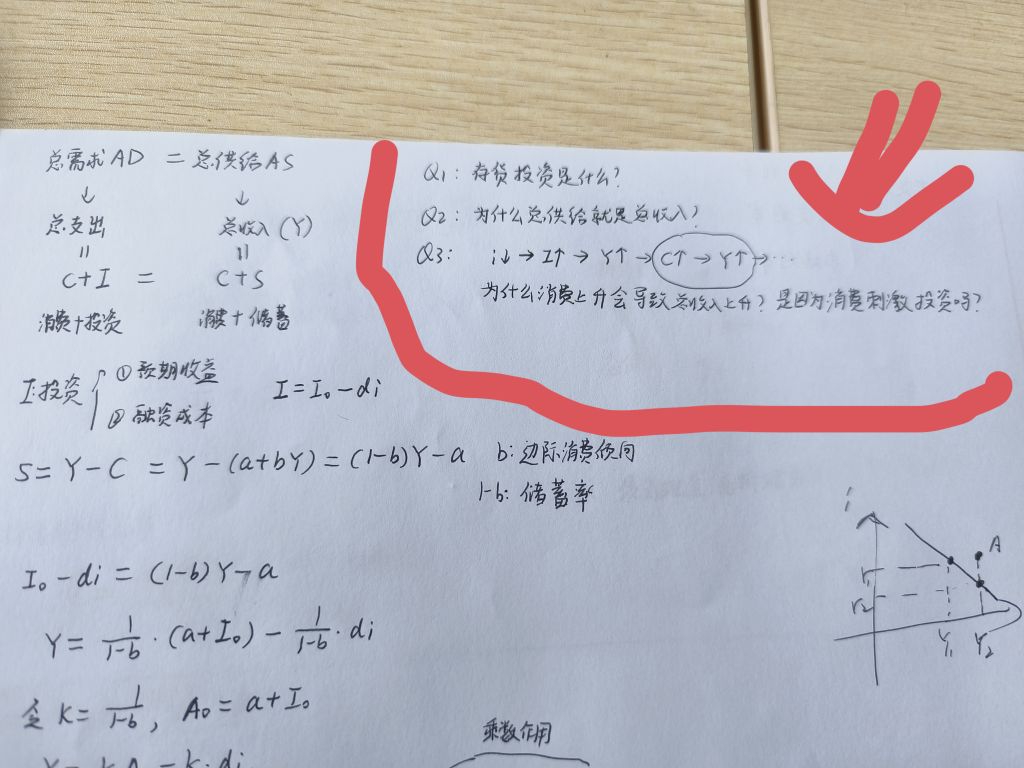 总需求AD = 总供给AS
↓ ↓
总支出 总收入(Y)
|| ||
C+I = C+S
消费+投资 消费+储蓄
Q1: 存货投资是什么?
Q2: 为什么总供给就是总收入?
Q3: i↓→I↑→Y↑→C↑→Y↑→···
为什么消费上升会导致总收入上升? 是因为消费刺激投资吗?
I:投资 { ①预期收益
②融资成本
I=I₀-di
S=Y-C=Y-(a+bY)=(1-b)Y-a b:边际消费倾向
1-b:储蓄率
I₀-di=(1-b)Y-a
Y=1/(1-b)·(a+I₀)-1/(1-b)·di
令K=1/(1-b), A₀=a+I₀
乘数作用
i
A
r₁
r₂
Y₁ Y₂